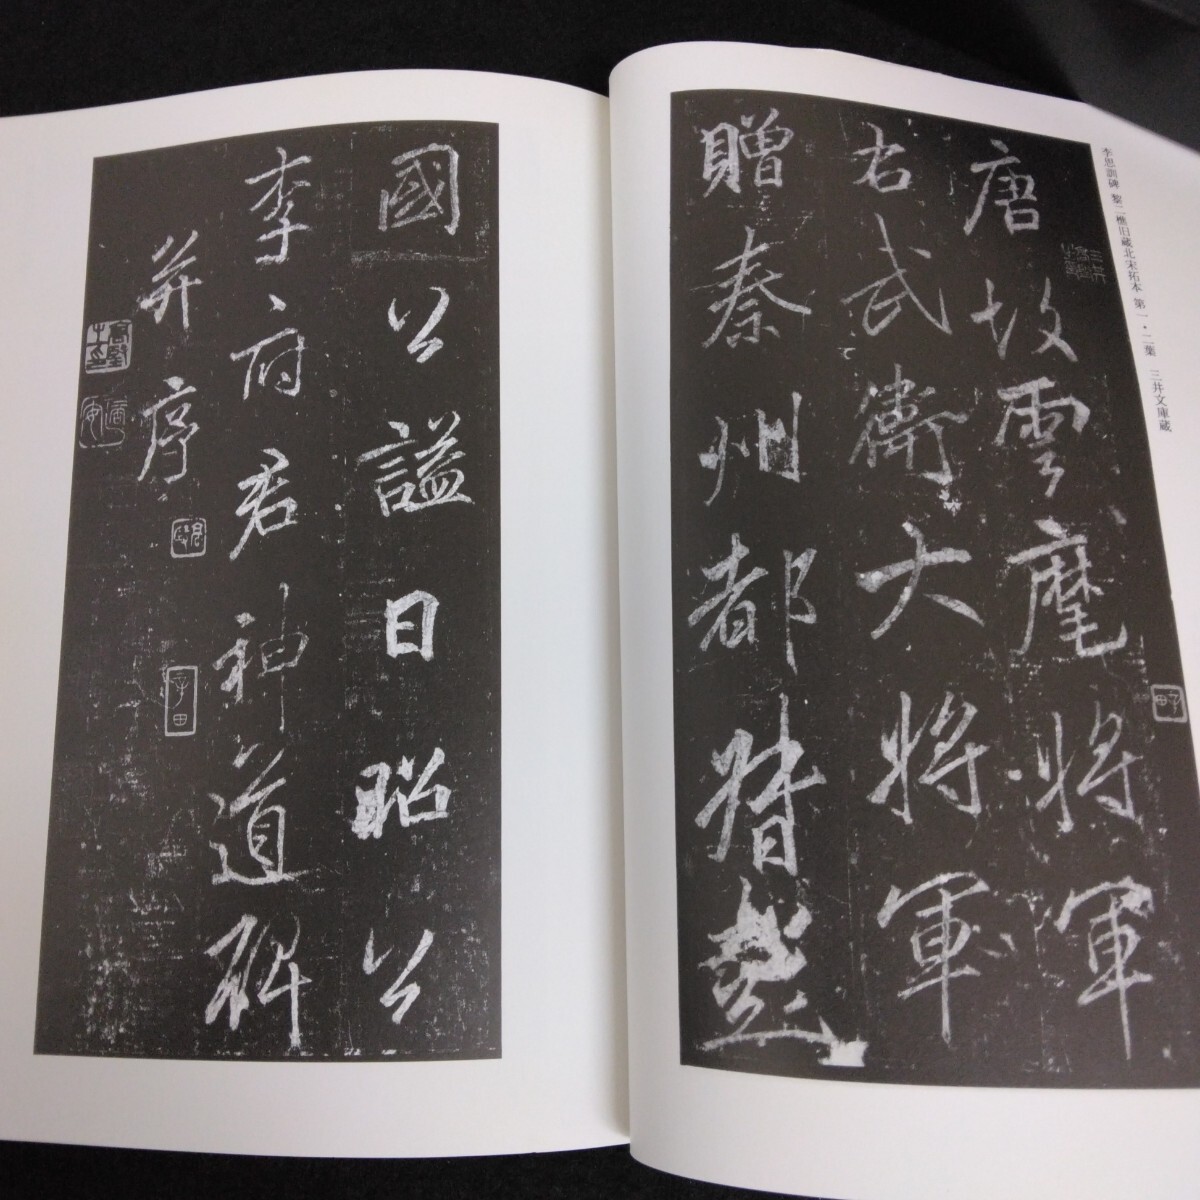 李思訓碑 黎二樵旧蔵北宋拓本 第一・二葉 三井文庫蔵
唐故雲麾將軍
右武衛大將軍
贈秦州都督彭
國公謚曰昭公
李府君神道碑
并序